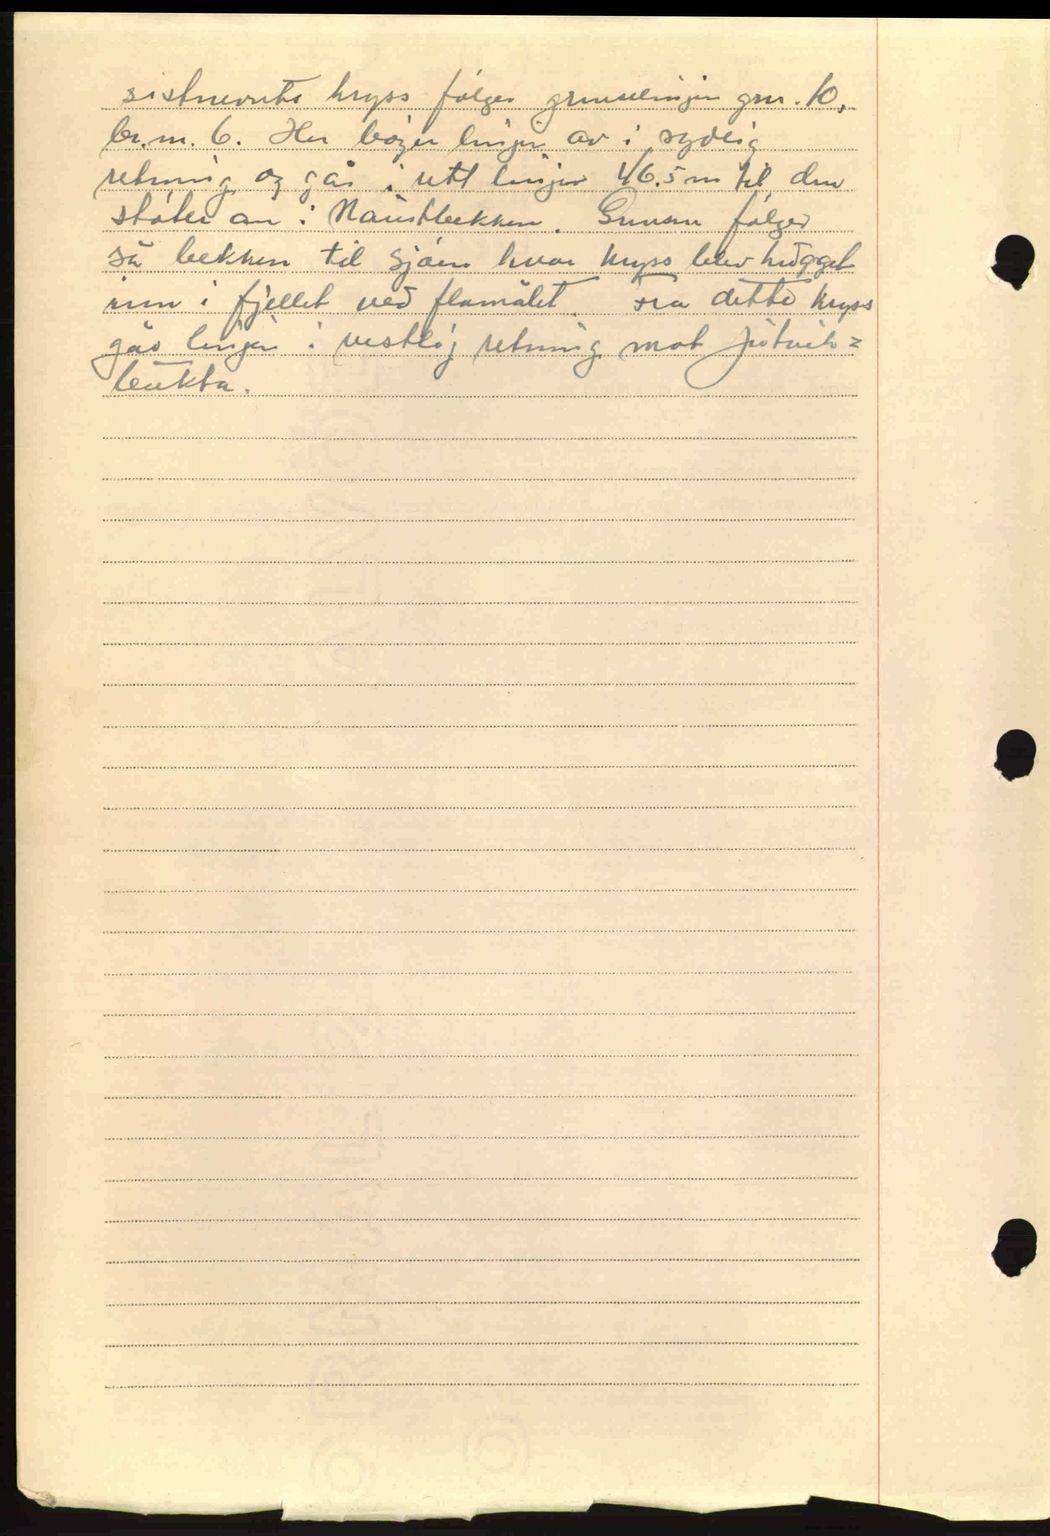 sistnevnte kryss følger grenselinjen grn. 10,
br.n. 6. Her bøyer linjen av i sydlig
retning og går i rett linje 46.5 m til den
støter an i Naustbekken. Grensen følger
så bekken til sjøen hvor kryss blev hugget
inn i fjellet ved flomålet. Fra dette kryss
går linjen i vestlig retning mot
bukta.